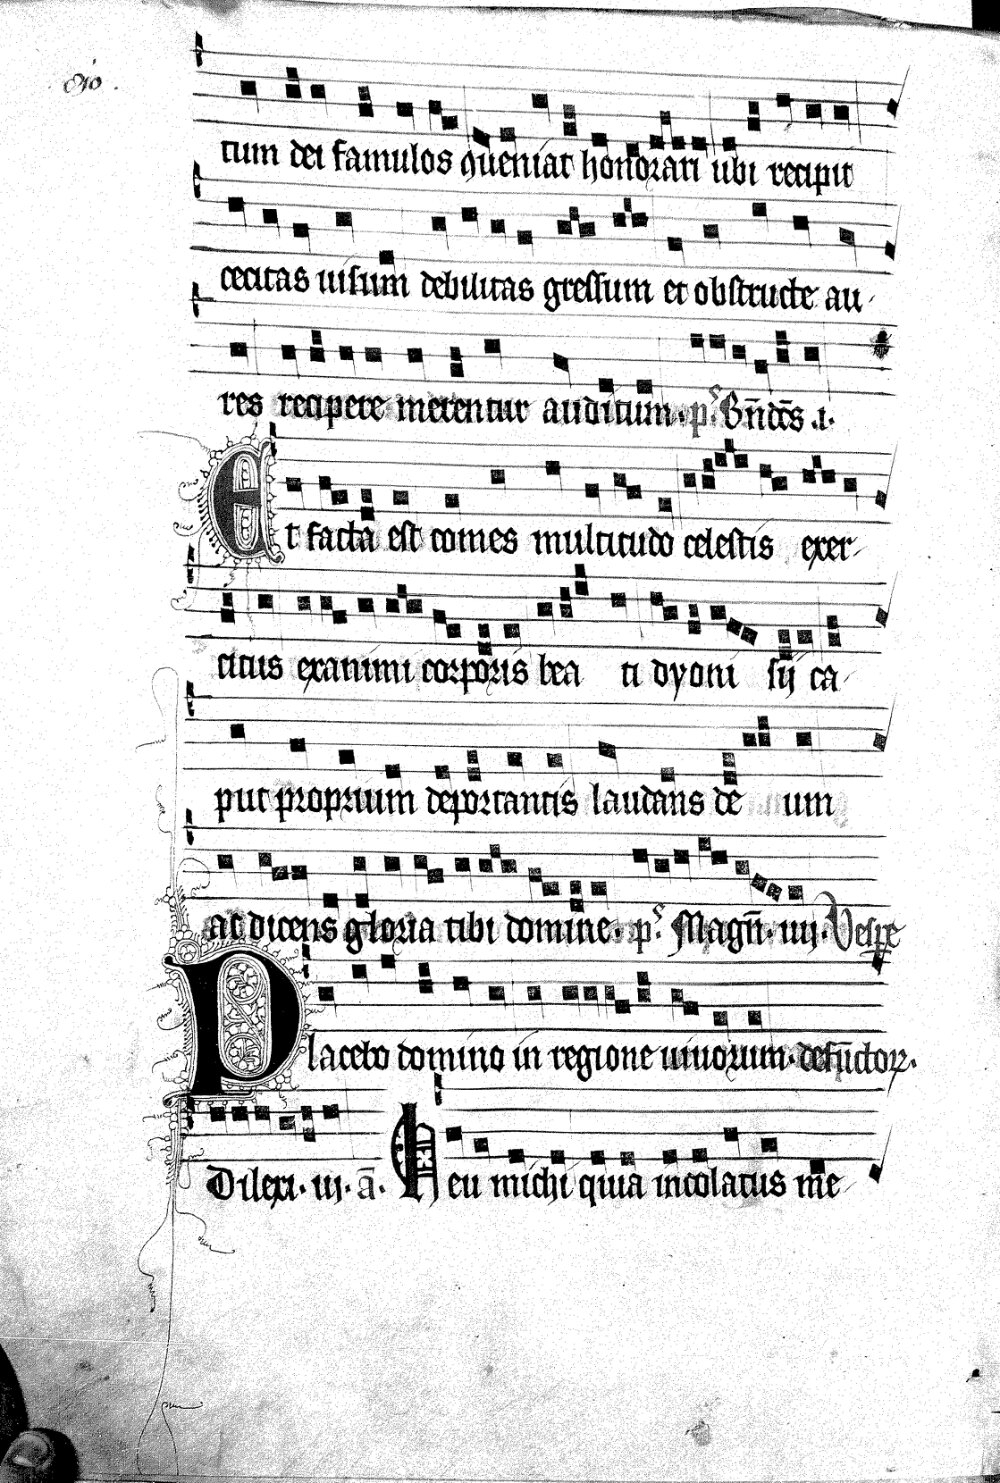 tum dei famulos queniat honorari ubi recipit
cecitas uisum debilitas gressum et obstructe au-
res recipere merentur auditum. ps. Bn̄dc̄s .i.
Et facta est comes multitudo celestis exer-
citus exanimi corporis bea ti dyoni sii ca-
put proprium deportantis laudans de um
ac dicens gloria tibi domine. ps. Magn̄. iiij. Vespe
Placebo domino in regione uiuorum. defūctorꝝ.
Dilexi. iij. ā. Heu michi quia incolatus me-